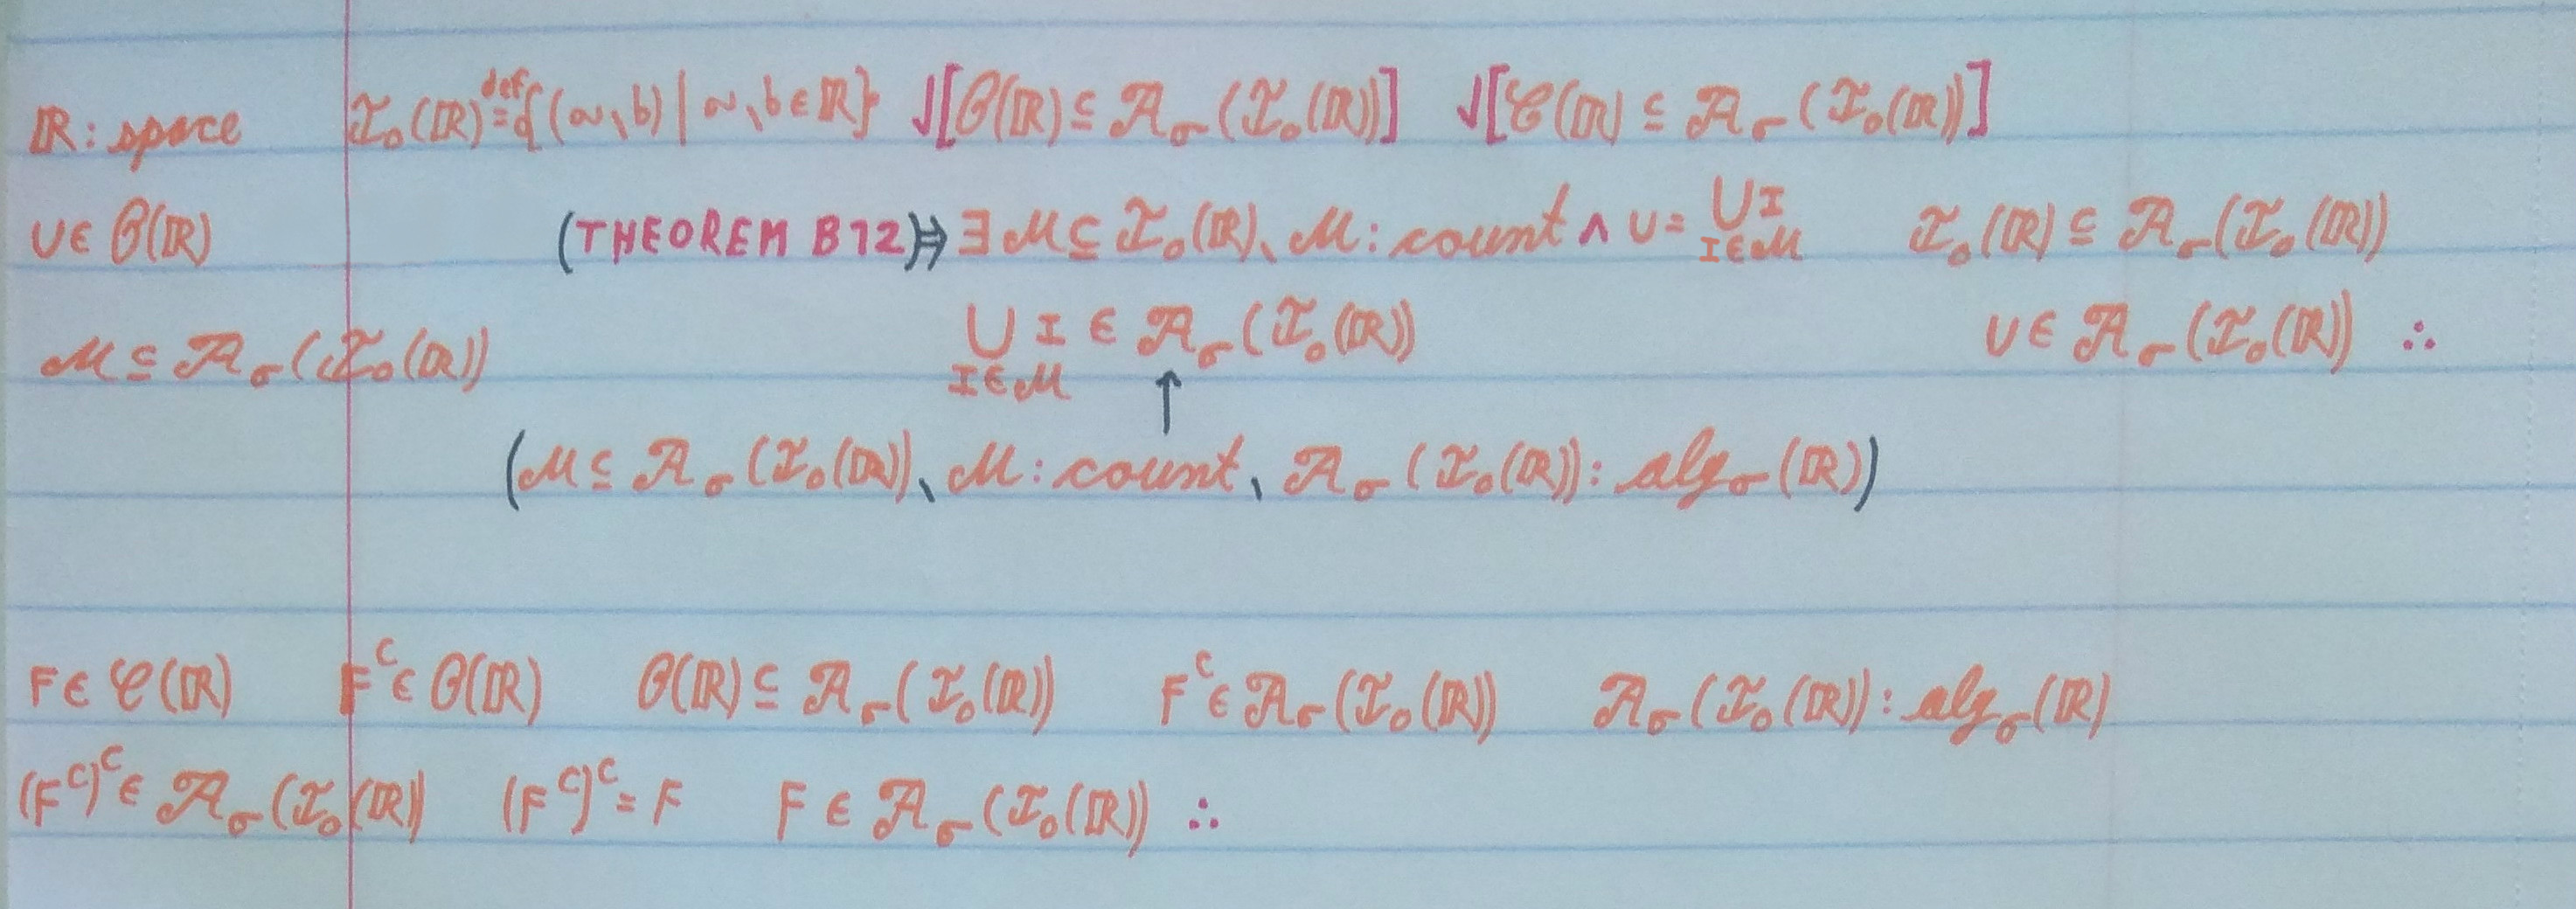 ℝ: space 𝓘₀(ℝ) ≝ {(a, b) | a, b ∈ ℝ} √[𝒪(ℝ) ⊆ 𝓐_σ(𝓘₀(ℝ))] √[𝒞(ℝ) ⊆ 𝓐_σ(𝓘₀(ℝ))]
U ∈ 𝒪(ℝ) (THEOREM B12)⇒ ∃ 𝓜 ⊆ 𝓘₀(ℝ), 𝓜: count ∧ U = ⋃_{I∈𝓜} I 𝓘₀(ℝ) ⊆ 𝓐_σ(𝓘₀(ℝ))
𝓜 ⊆ 𝓐_σ(𝓘₀(ℝ)) ⋃_{I∈𝓜} I ∈ 𝓐_σ(𝓘₀(ℝ)) U ∈ 𝓐_σ(𝓘₀(ℝ)) ∴
↑
(𝓜 ⊆ 𝓐_σ(𝓘₀(ℝ)), 𝓜: count, 𝓐_σ(𝓘₀(ℝ)): alg_σ(ℝ))
F ∈ 𝒞(ℝ) F^C ∈ 𝒪(ℝ) 𝒪(ℝ) ⊆ 𝓐_σ(𝓘₀(ℝ)) F^C ∈ 𝓐_σ(𝓘₀(ℝ)) 𝓐_σ(𝓘₀(ℝ)): alg_σ(ℝ)
(F^C)^C ∈ 𝓐_σ(𝓘₀(ℝ)) (F^C)^C = F F ∈ 𝓐_σ(𝓘₀(ℝ)) ∴